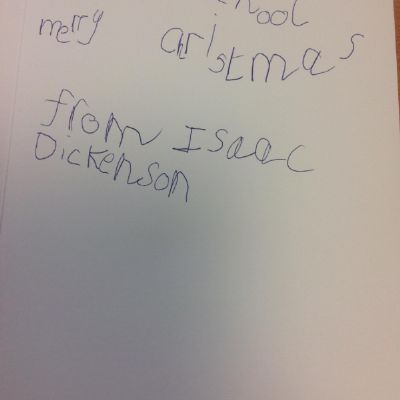 merry christmas
from Isaac
Dickenson